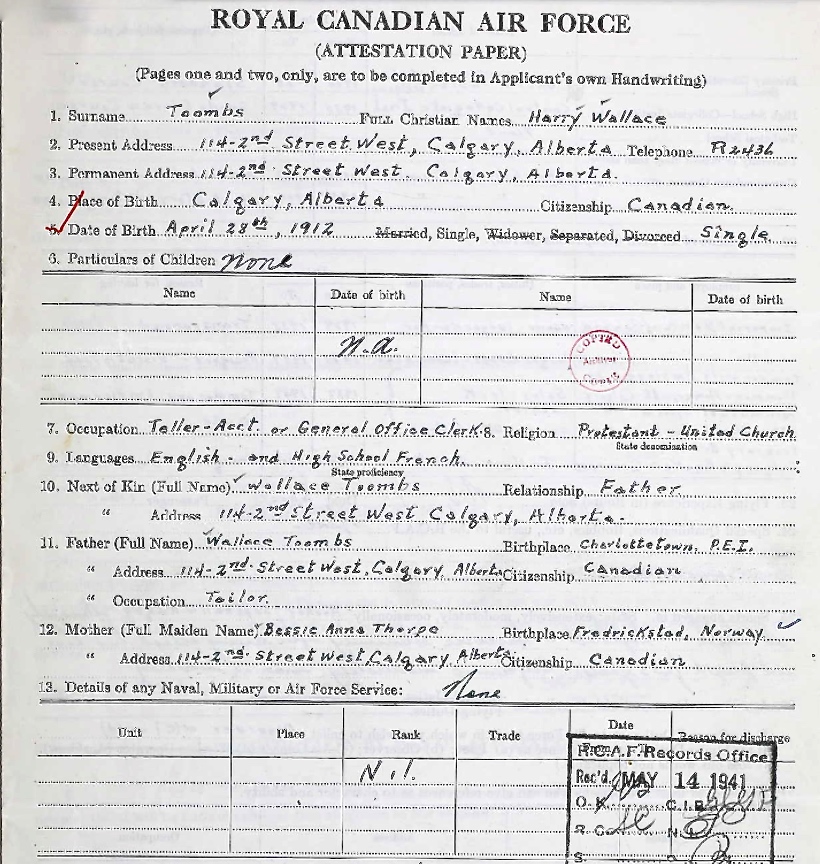 ROYAL CANADIAN AIR FORCE
(ATTESTATION PAPER)
(Pages one and two, only, are to be completed in Applicant's own Handwriting)
1. Surname Toombs Full Christian Names Harry Wallace
2. Present Address 114-2nd Street West, Calgary, Alberta Telephone R2436
3. Permanent Address 114-2nd Street West. Calgary, Alberta.
4. Place of Birth Calgary, Alberta Citizenship Canadian.
5. Date of Birth April 28th, 1912 Married, Single, Widower, Separated, Divorced Single
6. Particulars of Children None
Name Date of birth Name Date of birth
N.A.
COPIED
7. Occupation Teller-Acct. or General Office Clerk 8. Religion Protestant - United Church
State denomination
9. Languages English - and High School French.
State proficiency
10. Next of Kin (Full Name) Wallace Toombs Relationship Father
" Address 114-2nd Street West Calgary, Alberta.
11. Father (Full Name) Wallace Toombs Birthplace Charlottetown, P.E.I.
" Address 114-2nd Street West, Calgary Alberta Citizenship Canadian
" Occupation Tailor.
12. Mother (Full Maiden Name) Bessie Anna Thorpe Birthplace Fredrickstad, Norway
" Address 114-2nd Street West, Calgary, Alberta. Citizenship Canadian
13. Details of any Naval, Military or Air Force Service: None
Unit Place Rank Trade Date Reason for discharge
From To
Nil.
R.C.A.F. Records Office
Rec'd. MAY 14 1941
O.K. C.I.B.
R.C. N.
S.